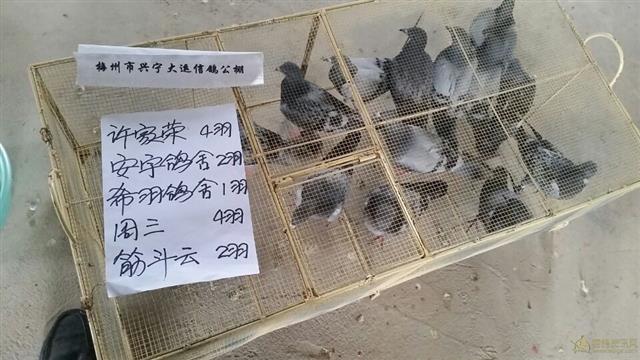 梅州市兴宁大运信鸽公棚
许家荣 4羽
安宁鸽舍 2羽
希羽鸽舍 1羽
周三 4羽
筋斗云 2羽